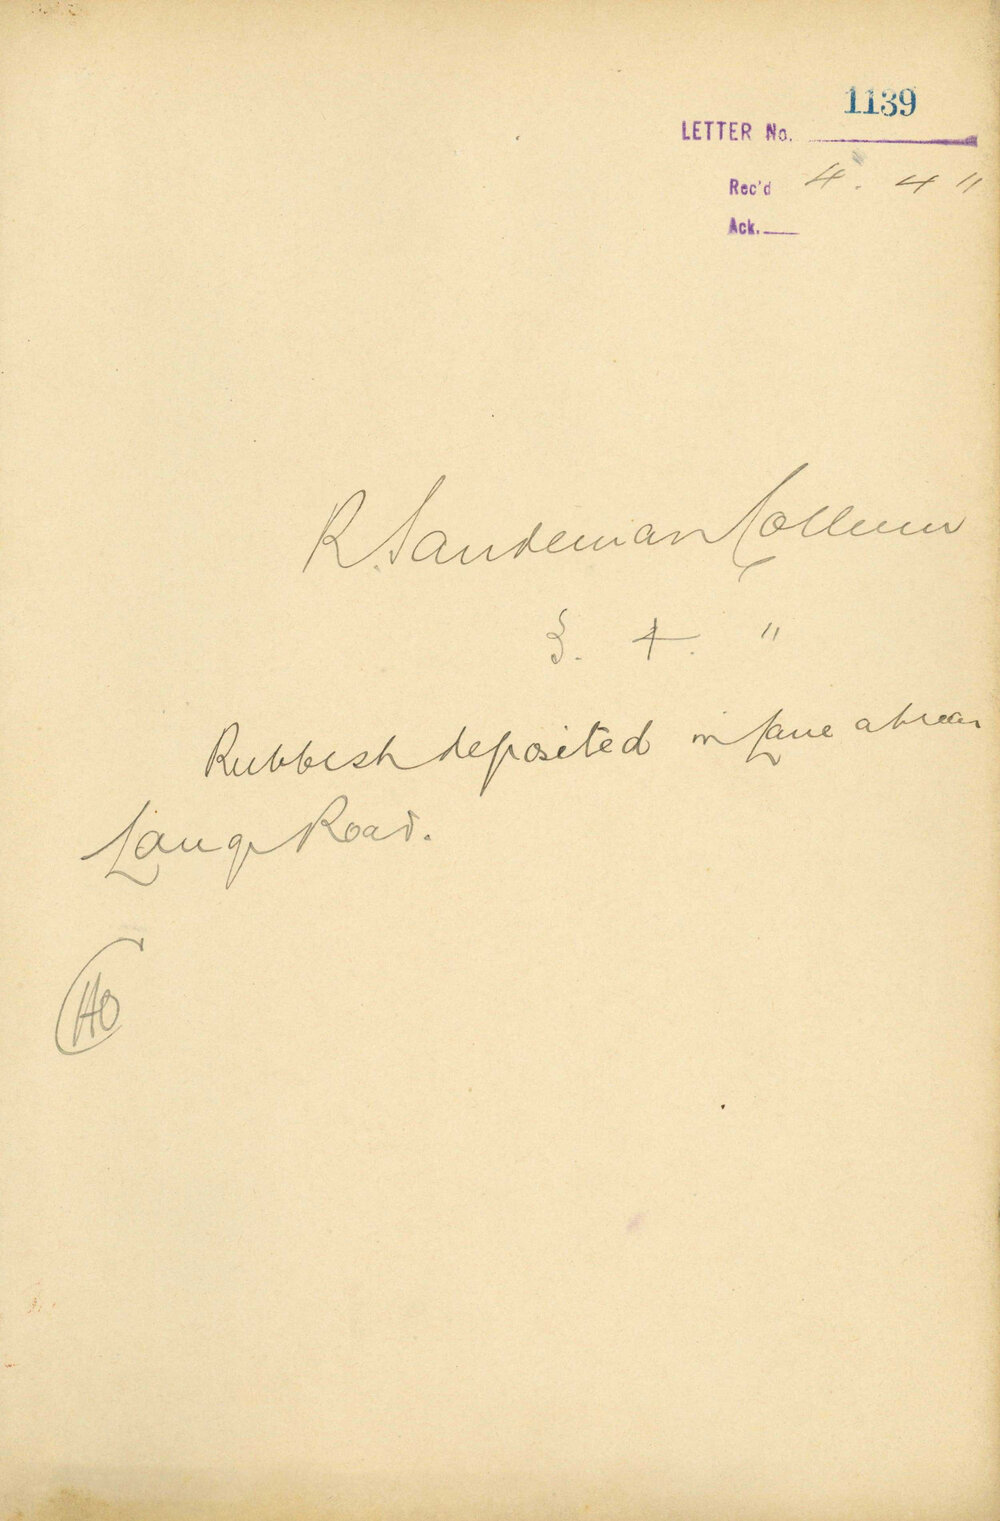 1139
LETTER No.
Rec'd 4. 4 11
Ack.
R. Sandeman Collum
3. 4. 11
Rubbish deposited in Lane at rear
Lang Road.
HO